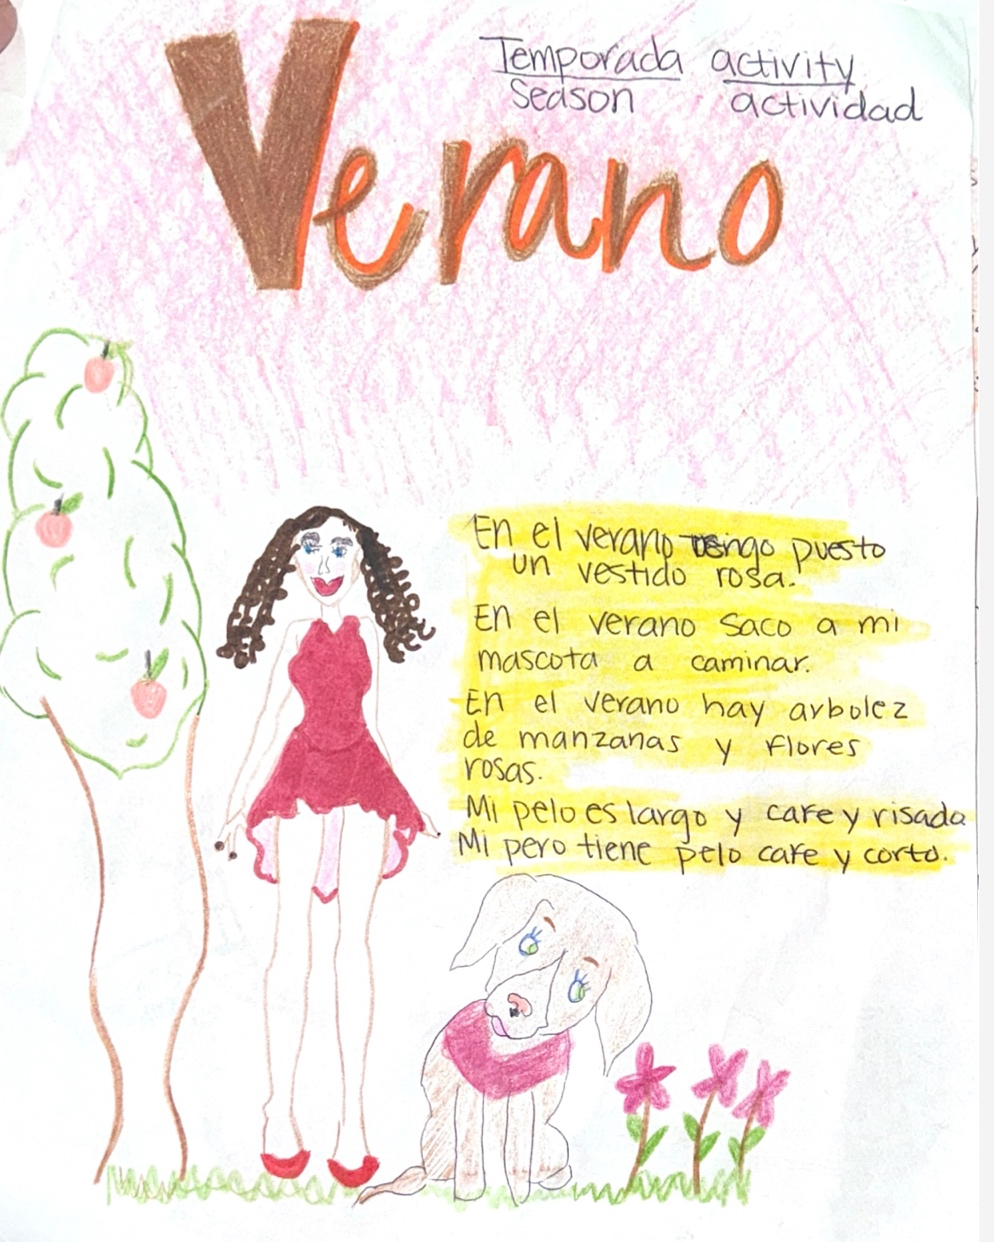 Temporada activity
season actividad
Verano
En el verano tengo puesto
un vestido rosa.
En el verano saco a mi
mascota a caminar.
En el verano hay arbolez
de manzanas y flores
rosas.
Mi pelo es largo y cafe y risada
Mi pero tiene pelo cafe y corto.